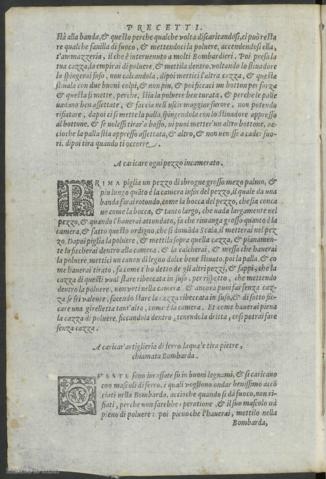 PRECETTI.
stà alla banda, & questo perche qualche volta discaricandosi, ci può resta
re qualche fauilla di fuoco, & mettendoci la poluere, accendendosi ella,
t'ammazzeria, il che è interuenuto a molti Bombardieri. Poi presa la
tua cazza, la empirai di poluere, & mettila dentro, voltando lo stinadore
lo spingerai suso, non calcandola, dipoi mettici l'altra cazza, & questa
stinala con due buoni colpi, & non piu, & poi ficcaci un botton per forza
& questa si mette, perche, stia la poluere ben turata, & perche le palle
uadano ben assettate, & faccia nell'uscir maggior furore, non potendo
rifiatare, dapoi ci si mette la palla spingendola con lo stinadore appresso
al bottone, & se volessi tirar'à basso, ui puoi metter'un altro bottone, ac-
cioche la palla stia appresso assettata, & altro, & non uenisse a cader fuo-
ri. dipoi tira quando ti occorre.
A caricare ogni pezzo incamerato.
PRIMA piglia un pezzo di brogne grosso mezo palmo, &
piu lungo quãto è la camera insin del pezzo, il quale da una
banda farai rotondo, come la bocca del pezzo, che sia conca
uo come la bocca, & tanto largo, che uada largamente nel
pezzo, & quando l'hauerai attondato, fa che rimanga grosso quanto è la
camera, & fatto questo ordigno, che si domãda Scala, il metterai nel pez-
zo. Dapoi piglia la poluere, & mettila sopra quella cazza, & pianamen-
te lascherai dentro alla camera, & la calcherai, & messa che hauerai
la poluere, mettici un canon di legno dolce bene stinato, poi la palla, & co
me hauerai tirato, fa come t'ho detto de gli altri pezzi, & sappi, che la
cazza di questi vuol stare riboccata in suso, perilpetto, che mettendo
dentro la poluere, non verti nella camera, & ancora puoi far senza caz-
za se sei valente, facendo stare la cazza riboccata in suso, & di sotto fic-
care una girelletta tant'alto, come è la camera. Et come hauerai piena
la cazza di poluere, ficcandola dentro, tenendola dritta, cosi potrai fare
senza cazza.
A caricar'artiglieria di ferro laqual'e tira pietre,
chiamata Bombarda.
QVESTE sono incassate sù in buoni legnami, & si caricano
con mascoli di ferro, i quali vogliono andar benissimo acco
sciati nella Bombardo, accioche quando si dà fuoco, non ri-
fiati, perche non farebbe operatione, & il suo mascolo uà
pieno di poluere: poi pieno che l'hauerai, mettilo nella
Bombarda,